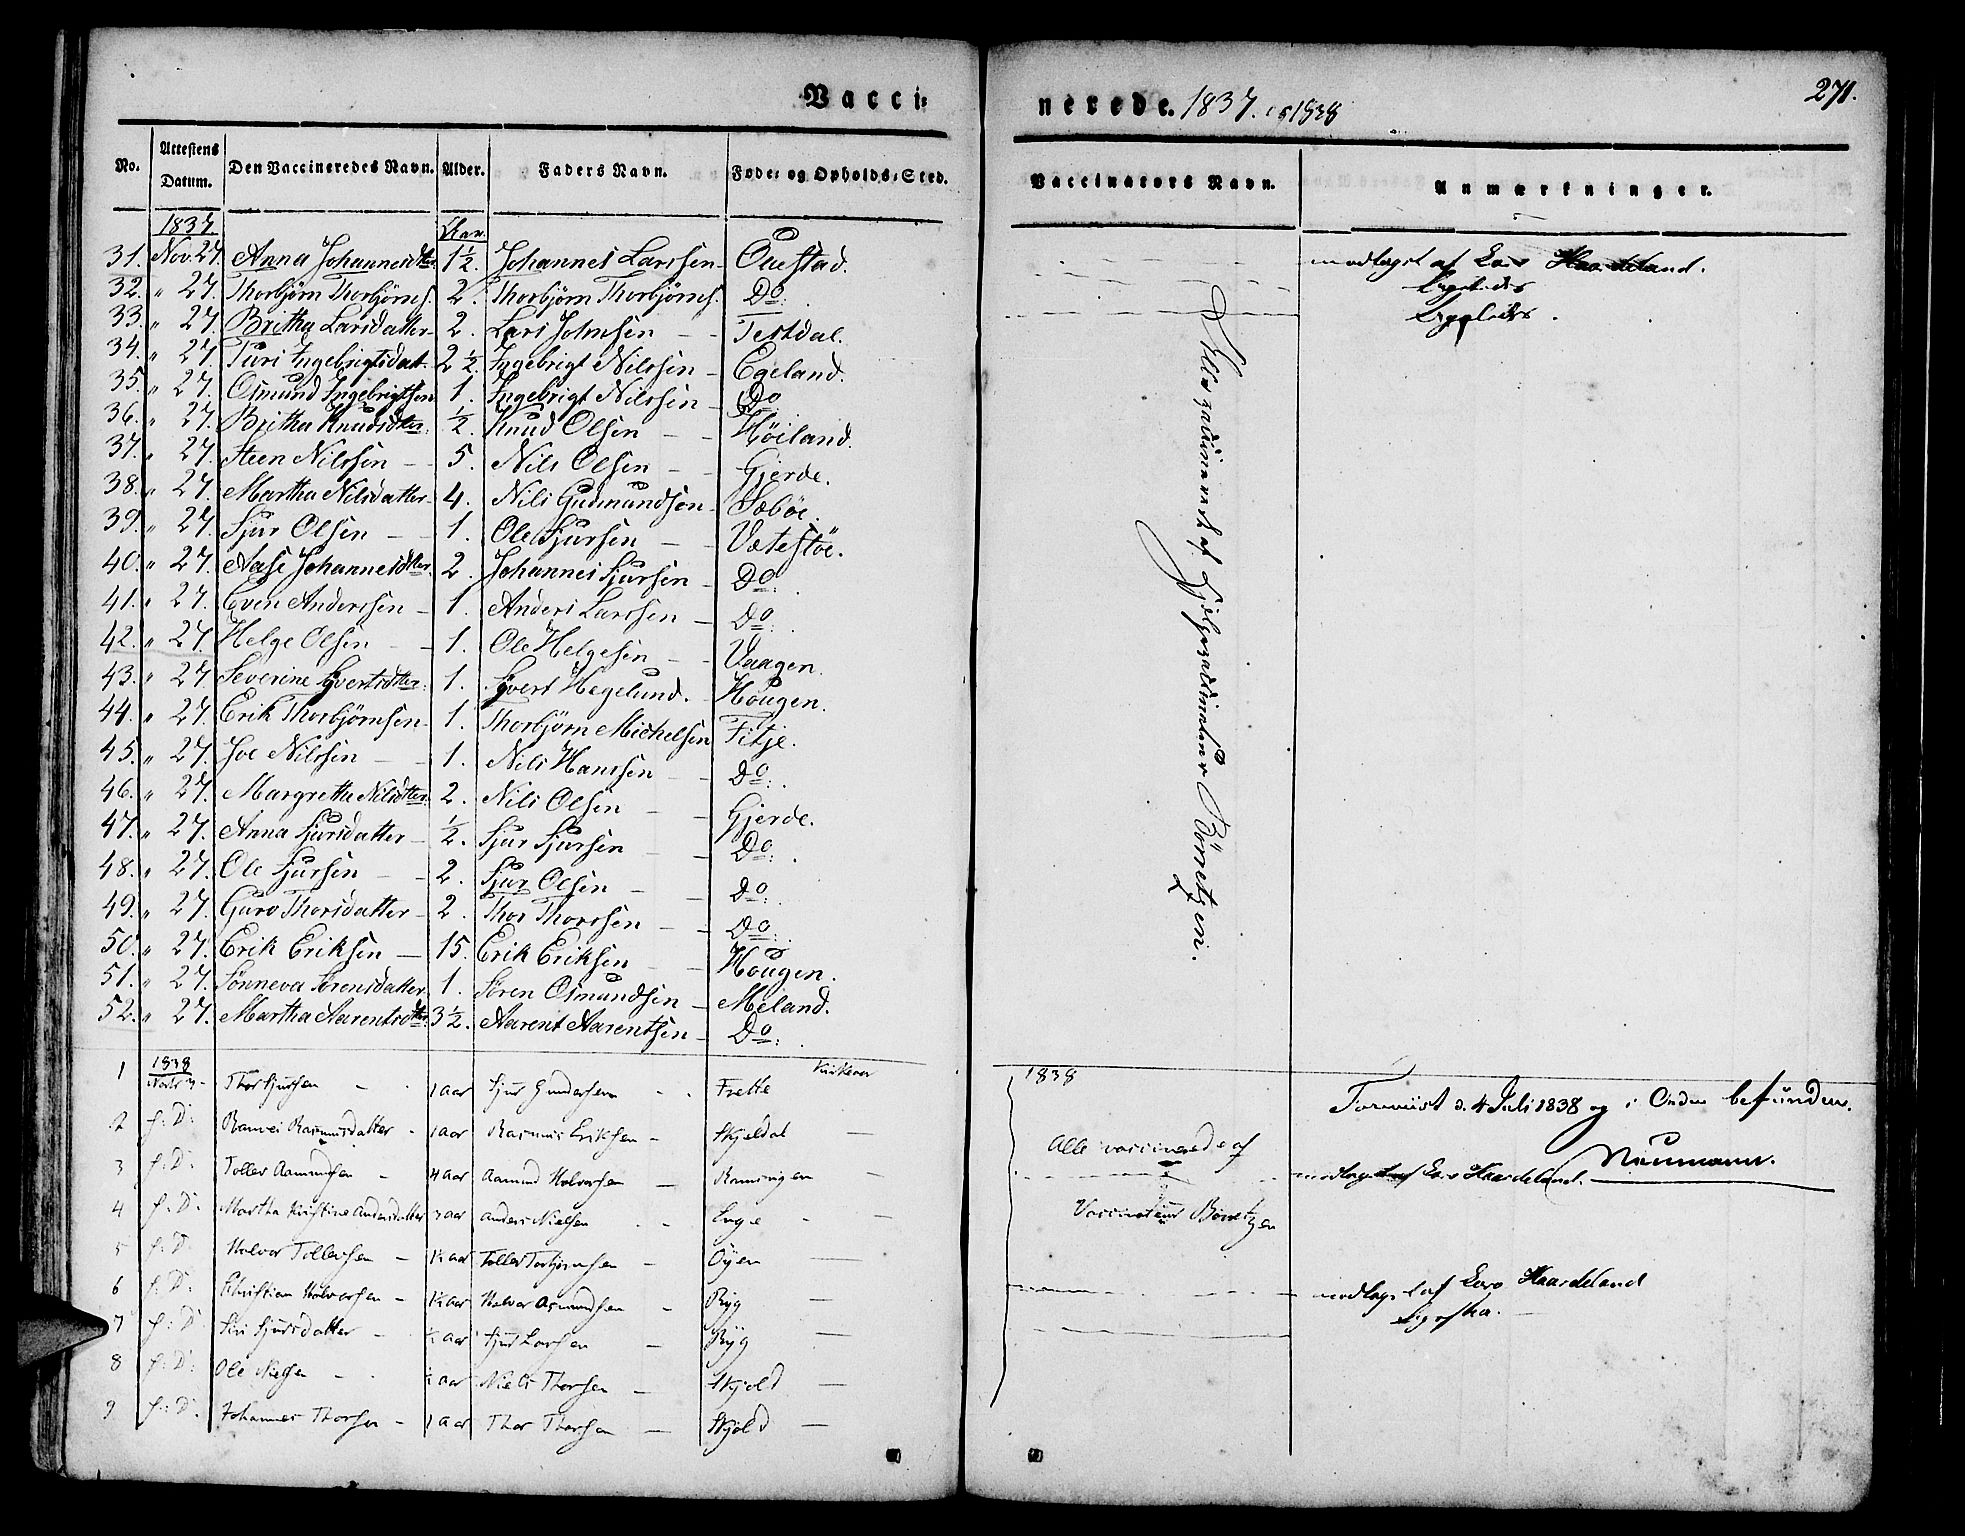 Vacci=
nerede. 1837. og 1838
271.
No. Attestens Datum. Den Vaccineredes Navn. Alder. Faders Navn. Føde= og Opholds=Sted. Vaccinators Navn. Anmærkninger.
1837. Aar.
31. Nov. 27. Anna Johannesdtter 1½. Johannes Larssen Ouestad. modtaget af Lars Haardeland.
32. " 27. Thorbjörn Thorbjörns. 2. Thorbjörn Thorbjörns. Do: ligeledes
33. " 27. Britha Larsdatter 2. Lars Johnsen Testdal. ligeledes
34. " 27. Turi Ingebrigtsdat. 2½. Ingebrigt Nilssen Egeland.
35. " 27. Osmund Ingebrigtsen 1. Ingebrigt Nilssen Do
36. " 27. Britha Knudsdtter. ½. Knud Olsen Höiland.
37. " 27. Steen Nilssen 5. Nils Olsen Gjerde.
38. " 27. Martha Nilsdatter 4. Nils Gudmundsen Sæböe.
39. " 27. Sjur Olsen 1. Ole Sjursen Vetestöe.
40. " 27. Aase Johannesdtter. 2. Johannes Sjursen Do:
41. " 27. Even Anderssen 1. Anders Larssen Do:
42. " 27. Helge Olsen 1. Ole Helgesen Vaagen.
43. " 27. Severine Syvertsdtter. 1. Syvert Hegelund. Hougen.
44. " 27. Erik Thorbjörnsen 1. Thorbjörn Michelsen Fitje.
45. " 27. Joe Nilssen 1. Nils Hanssen Do:
46. " 27. Margrethe Nilsdtter. 2. Nils Olsen Gjerde.
47. " 27. Anna Sjursdatter ½. Sjur Sjursen Do:
48. " 27. Ole Sjursen 2. Sjur Olsen Do:
49. " 27. Guro Thorsdatter 2. Thor Thorssen Do:
50. " 27. Erik Eriksen 15. Erik Eriksen Hougen.
51. " 27. Sönneva Sörensdatter 1. Sören Osmundsen Meland.
52. " 27. Martha Aarentsdtter. 3½. Aarent Aarentsen Do:
Alle vaccineret af Hjelpevaccinateur Börretzen.
1838
1838
1 Thor Sjursen 1 aar Sjur Gundersen Frette
Foreviist d. 4 Juli 1838 og i Orden befunden.
Neumann.
2 f: D: Ranvei Rasmusdatter 1 aar Rasmus Eriksen Skjeldal
Alle vaccinerede af
3 f: D: Tollev Aamundsen 4 aar Aamund Halvorsen Rønningen modtaget af Lars Haardeland.
4 f: D: Martha Kristine Andersdatter 3 aar Anders Nielsen Enge
Vaccinateur Börretzen
5 f: D: Halvor Tollevsen ½ aar Tollev Torbjørnsen Öyen
6 f: D: Christian Halvorsen ½ aar Halvor Osmundsen Ryg modtaget af Lars Haardeland
7 f: D: Siri Sjursdatter ½ aar Sjur Larsen Ryg
8 f: D: Ole Nielsen ½ aar Niels Thorsen Skjold
9 f: D: Johannes Thorsen 1 aar Thor Thorsen Skjold